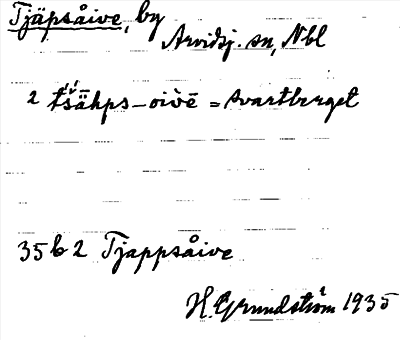 Tjäpsåive, by
Arvidsj. sn, Nbl
2 tšāhps-oivē = Svartberget
35 b 2 Tjappsåive
H. Grundström 1935